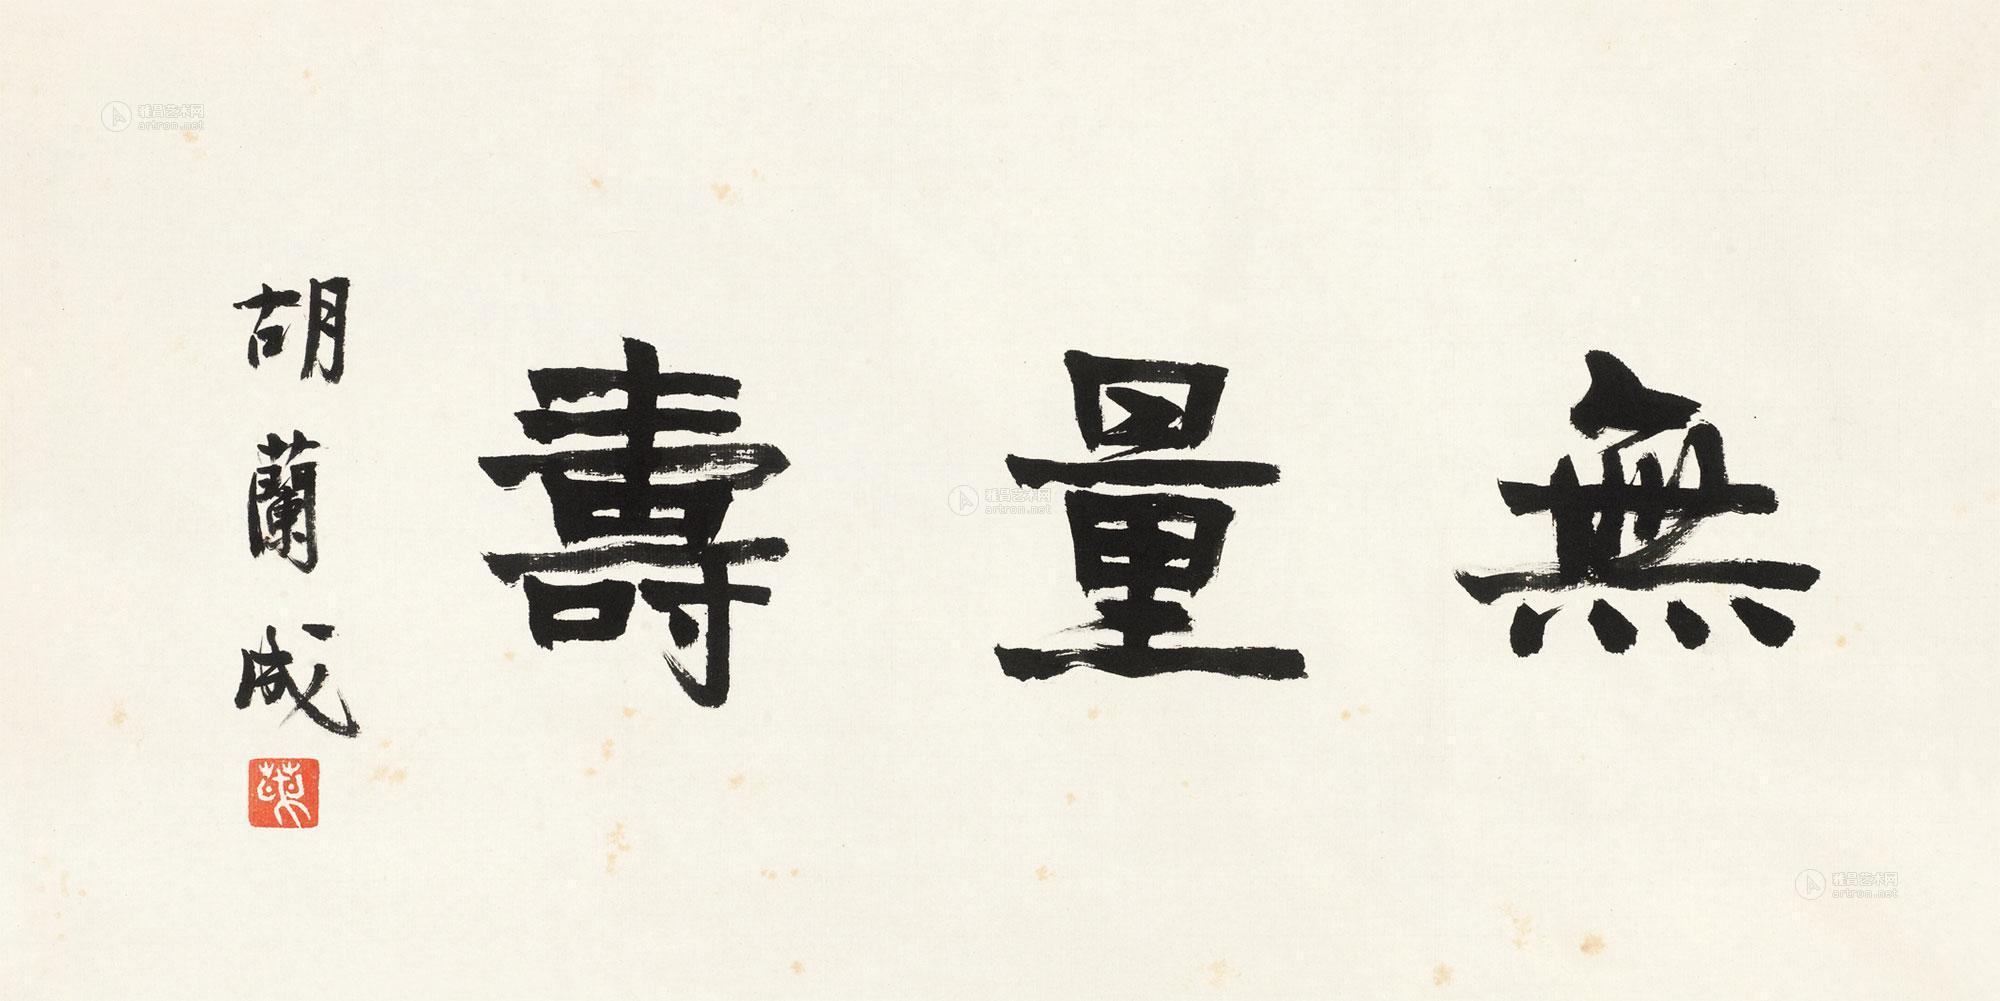 無量壽
胡蘭成
雅昌艺术网
artron.net
雅昌艺术网
artron.net
雅昌艺术网
artron.net